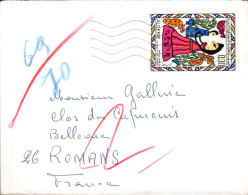 69
70
Monsieur Gallice
Clos des Capucins
Bellevue
26 ROMANS
France